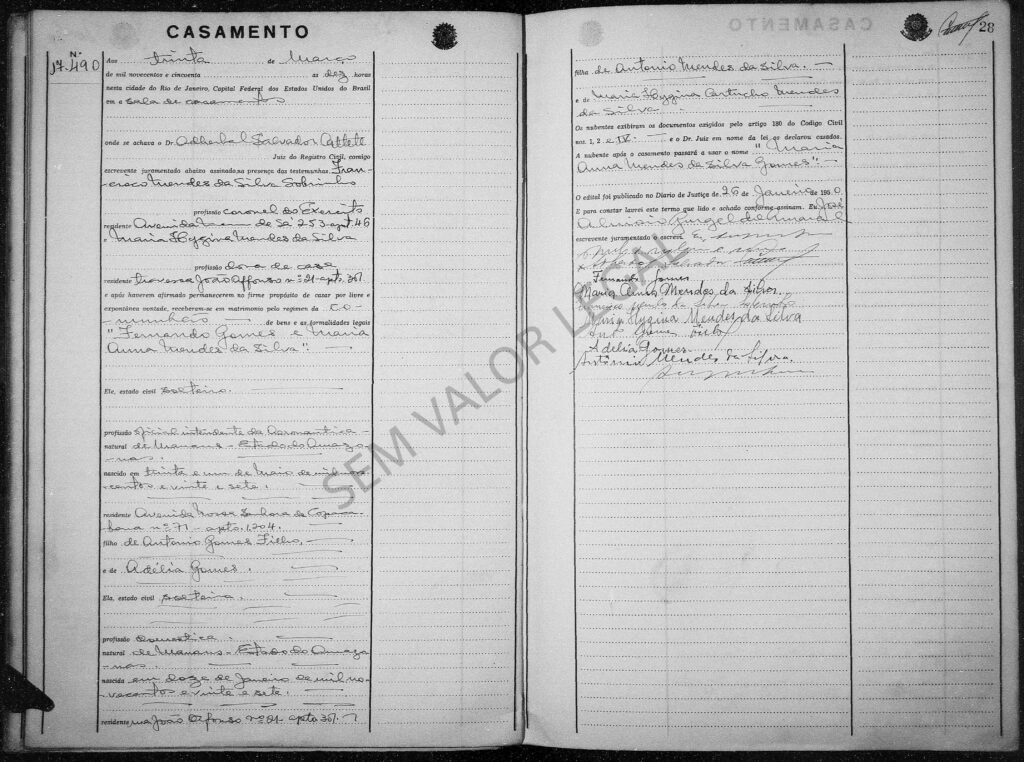 CASAMENTO
N.º
17.490
Aos trinta de Março
de mil novecentos e cincoenta as dez horas
nesta cidade do Rio de Janeiro, Capital Federal dos Estados Unidos do Brasil
em a sala de casamentos
onde se achava o Dr. Adherbal Salvador Cattete
Juiz do Registro Civil, comigo
escrevente juramentado abaixo assinado, na presença da testemunhas Fran-
cisco Mendes da Silva Sobrinho
profissão coronel do Exercito
residente Avenida Mem de Sá 253 apt 46
e Maria Hygina Mendes da Silva
profissão dona de casa
residente travessa João Affonso nº 21 apto 361
e após haverem afirmado permanecerem no firme propósito de casar por livre e
expontânea vontade, receberam-se em matrimonio pelo regimen da co-
munhão de bens e as formalidades legais
"Fernando Gomes e Maria
Anna Mendes da Silva".
Ele, estado civil solteiro.
profissão oficial intendente da Aeronautica
natural de Manaus - Estado do Amazo-
nas.
nascido em trinta e um de Maio de mil nove-
centos e vinte e sete.
residente Avenida Nossa Senhora de Copaca-
bana nº 71 - apto. 1.204.
filho de Antonio Gomes Filho.
e de Adélia Gomes.
Ela, estado civil solteira.
profissão domestica.
natural de Manaus - Estado do Amazo-
nas.
nascida em doze de Janeiro de mil no-
vecentos e vinte e sete.
residente rua João Affonso nº 21 apto 361.
CASAMENTO
28
filha de Antonio Mendes da Silva.
e de Maria Hygina Cartucho Mendes
da Silva
Os nubentes exibiram os documentos exigidos pelo artigo 180 do Codigo Civil
nos. 1, 2 e IV e o Dr. Juiz em nome da lei os declarou casados.
A nubente após o casamento passará a usar o nome "Maria
Anna Mendes da Silva Gomes".
O edital foi publicado no Diario de Justiça de 26 de Janeiro de 1950.
E para constar lavrei este termo que lido e achado conforme assinam. Eu, José
Gurgel do Amaral
escrevente juramentado o escrevi. E,
Fernando Gomes
Maria Anna Mendes da Silva.
Maria Hygina Mendes da Silva
Ant. Gomes Filho
Adélia Gomes.
Antônio Mendes da Silva.
SEM VALOR LEGAL